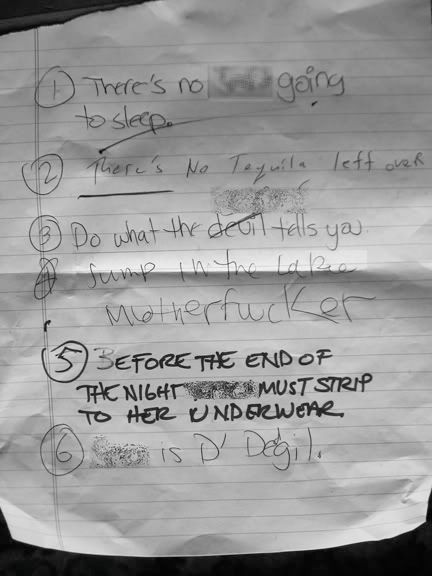 1 There's no going
to sleep.
2 There's No Tequila left over
3 Do what the devil tells you.
4 Jump in the Lake
Motherfucker
5 BEFORE THE END OF
THE NIGHT MUST STRIP
TO HER UNDERWEAR.
6 is D' Degil.